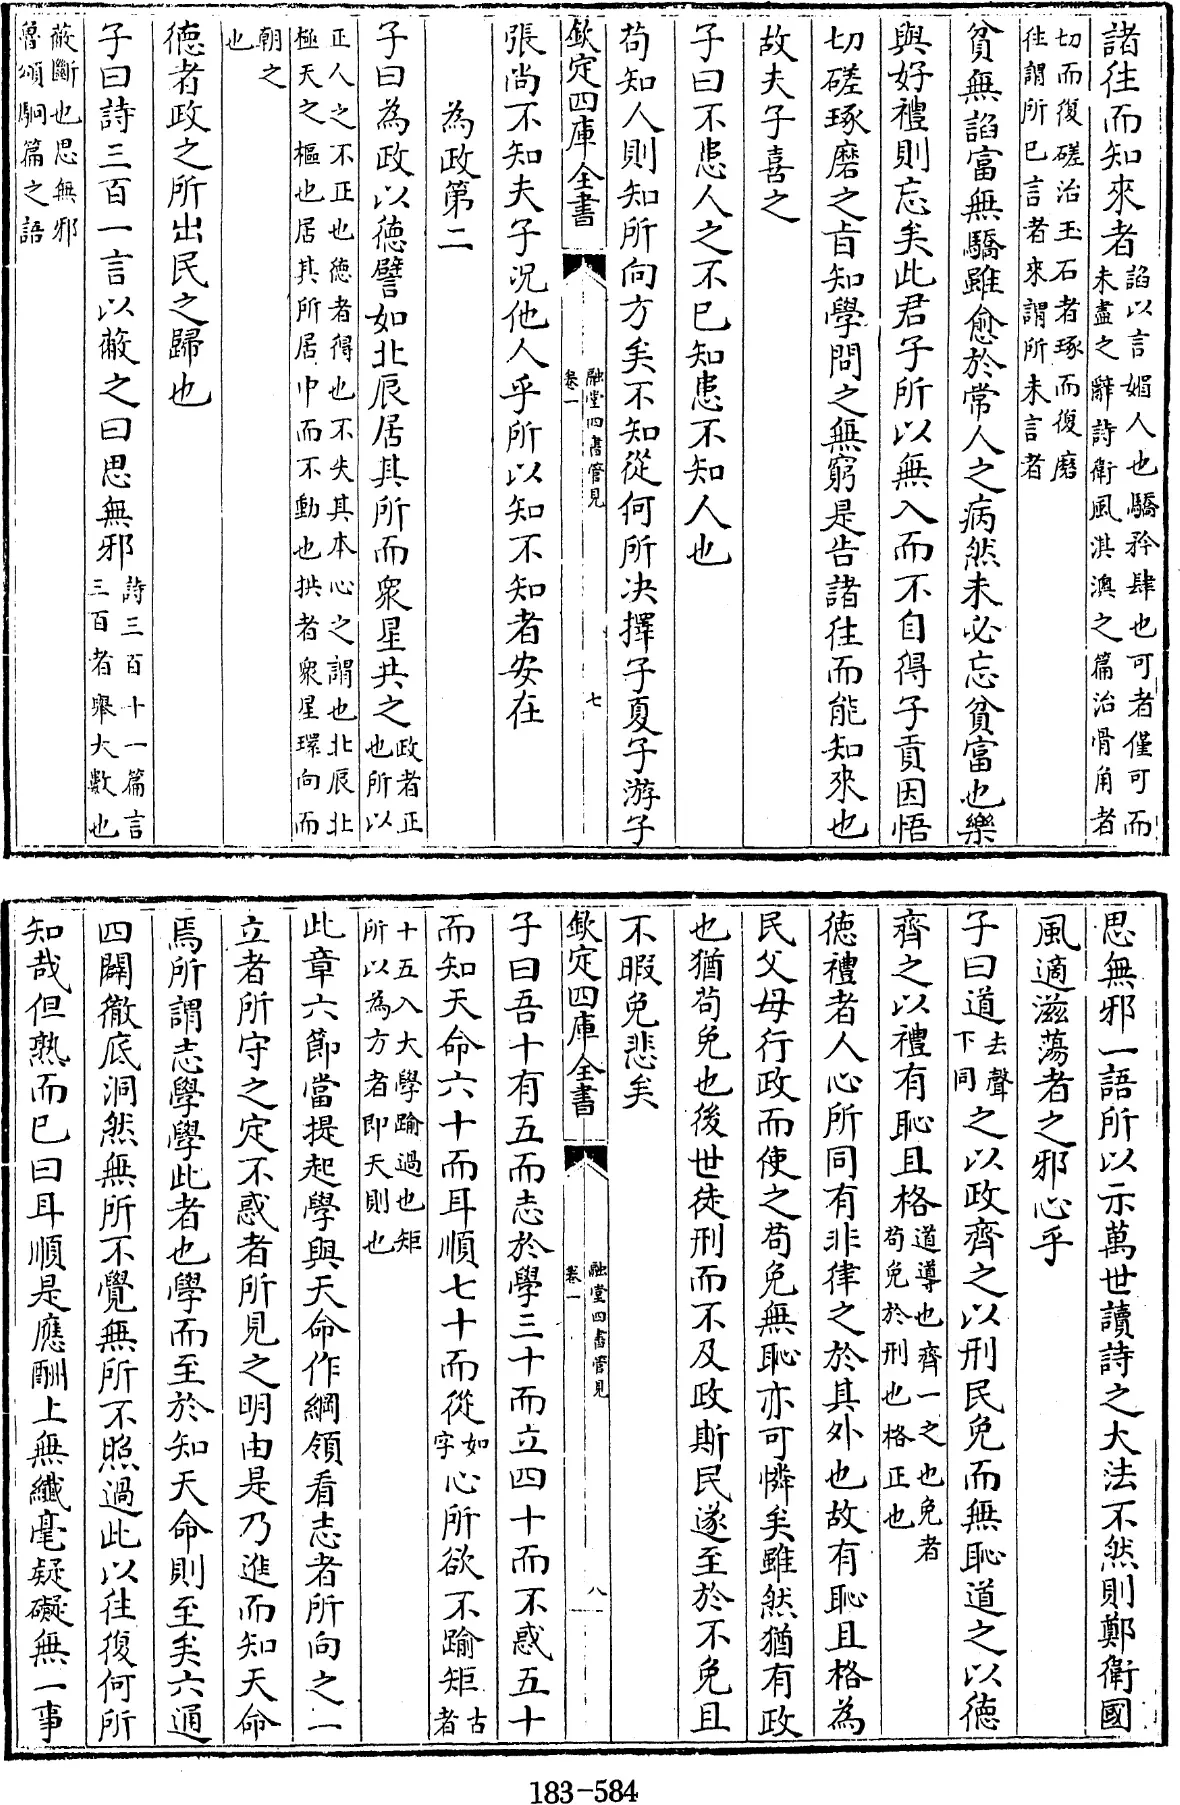 諸往而知來者諂以言媚人也驕矜肆也可者僅可而未盡之辭詩衛風淇澳之篇治骨角者
切而復磋治玉石者琢而復磨往謂所已言者來謂所未言者
貧無諂富無驕雖愈於常人之病然未必忘貧富也樂
與好禮則忘矣此君子所以無入而不自得子貢因悟
切磋琢磨之㫖知學問之無窮是告諸往而能知來也
故夫子喜之
子曰不患人之不已知患不知人也
苟知人則知所向方矣不知從何所决擇子夏子游子
欽定四庫全書 融堂四書管見 卷一 七
張尚不知夫子况他人乎所以知不知者安在
為政第二
子曰為政以德譬如北辰居其所而衆星共之政者正也所以
正人之不正也德者得也不失其本心之謂也北辰北極天之樞也居其所居中而不動也拱者衆星環向而
朝之也
德者政之所出民之歸也
子曰詩三百一言以蔽之曰思無邪詩三百十一篇言三百者舉大數也
蔽斷也思無邪魯頌駉篇之語
思無邪一語所以示萬世讀詩之大法不然則鄭衛國
風適滋蕩者之邪心乎
子曰道去聲下同之以政齊之以刑民免而無恥道之以德
齊之以禮有恥且格道導也齊一之也免者苟免於刑也格正也
德禮者人心所同有非律之於其外也故有恥且格為
民父母行政而使之苟免無恥亦可憐矣雖然猶有政
也猶苟免也後世徒刑而不及政斯民遂至於不免且
不暇免悲矣
欽定四庫全書 融堂四書管見 卷一 八
子曰吾十有五而志於學三十而立四十而不惑五十
而知天命六十而耳順七十而從如字心所欲不踰矩古者
十五入大學踰過也矩所以為方者即天則也
此章六節當提起學與天命作綱領看志者所向之一
立者所守之定不惑者所見之明由是乃進而知天命
焉所謂志學學此者也學而至於知天命則至矣六通
四闢徹底洞然無所不覺無所不照過此以往復何所
知哉但熟而已曰耳順是應酬上無纖毫疑礙無一事
183-584